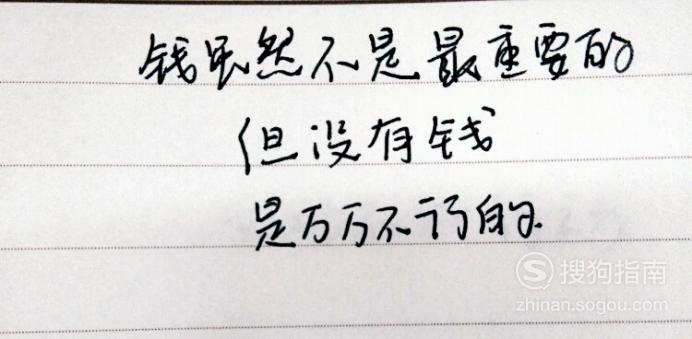 钱虽然不是最重要的
但没有钱
是万万不行的
搜狗指南
zhinan.sogou.com